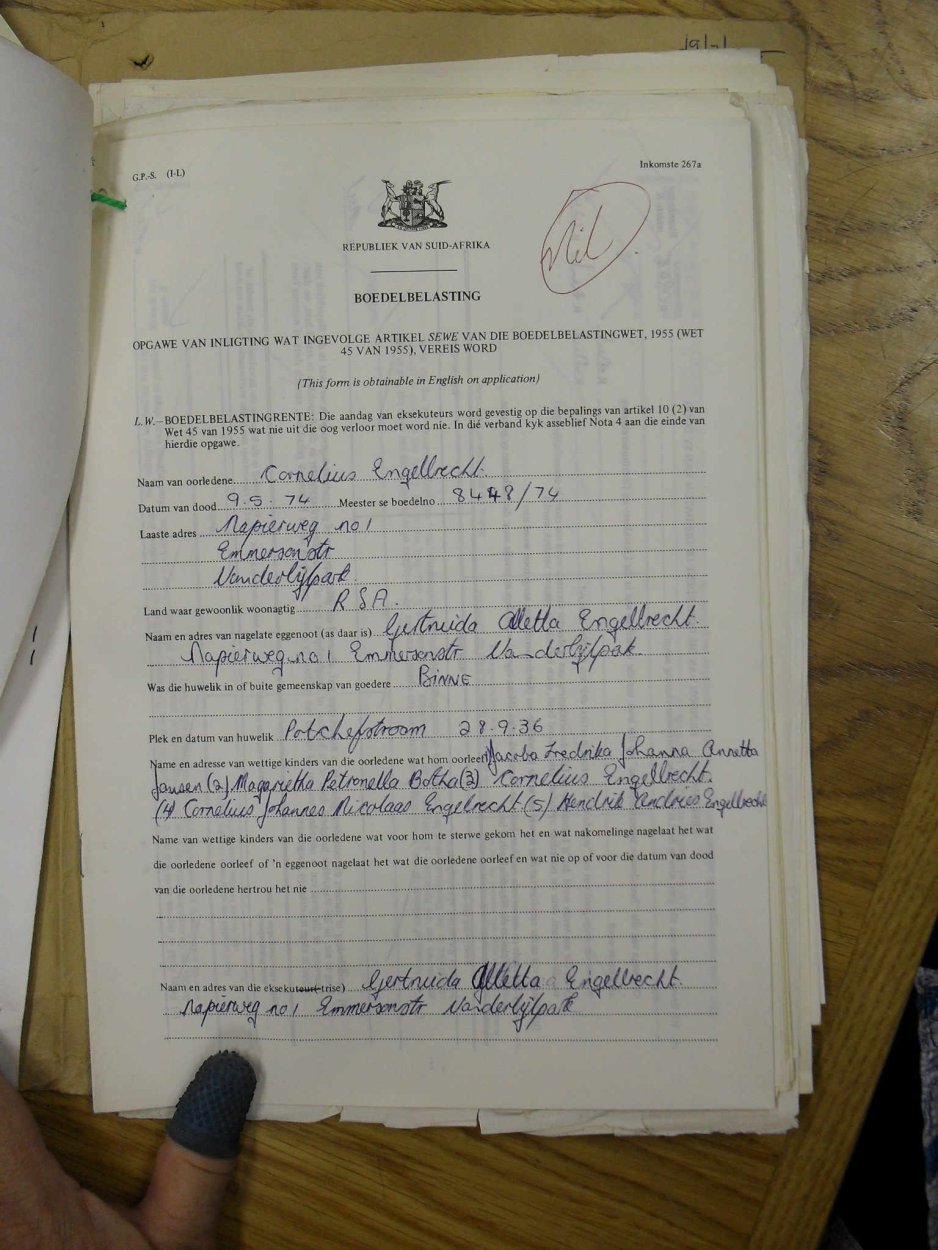 G.P.-S. (I-L)
Inkomste 267a
Nil
REPUBLIEK VAN SUID-AFRIKA
BOEDELBELASTING
OPGAWE VAN INLIGTING WAT INGEVOLGE ARTIKEL SEWE VAN DIE BOEDELBELASTINGWET, 1955 (WET
45 VAN 1955), VEREIS WORD
(This form is obtainable in English on application)
L.W.—BOEDELBELASTINGRENTE: Die aandag van eksekuteurs word gevestig op die bepalings van artikel 10 (2) van
Wet 45 van 1955 wat nie uit die oog verloor moet word nie. In dié verband kyk asseblief Nota 4 aan die einde van
hierdie opgawe.
Naam van oorledene Cornelius Engelbrecht.
Datum van dood 9.5.74 Meester se boedelno 8448/74
Laaste adres Napierweg no 1
Emmersonstr
Vanderbijlpark.
Land waar gewoonlik woonagtig R.S.A.
Naam en adres van nagelate eggenoot (as daar is) Gertruida Alletta Engelbrecht.
Napierweg no 1 Emmersonstr Vanderbijlpark.
Was die huwelik in of buite gemeenskap van goedere BINNE
Plek en datum van huwelik Potchefstroom 28.9.36
Name en adresse van wettige kinders van die oorledene wat hom oorleef (1) Jacoba Fredrika Johanna Annetta
Jansen (2) Magarietha Petronella Botha (3) Cornelius Engelbrecht.
(4) Cornelius Johannes Nicolaas Engelbrecht (5) Hendrik Andries Engelbrecht
Name van wettige kinders van die oorledene wat voor hom te sterwe gekom het en wat nakomelinge nagelaat het wat
die oorledene oorleef of 'n eggenoot nagelaat het wat die oorledene oorleef en wat nie op of voor die datum van dood
van die oorledene hertrou het nie
Naam en adres van die eksekuteur(-trise) Gertruida Alletta Engelbrecht.
Napierweg no 1 Emmersonstr Vanderbijlpark